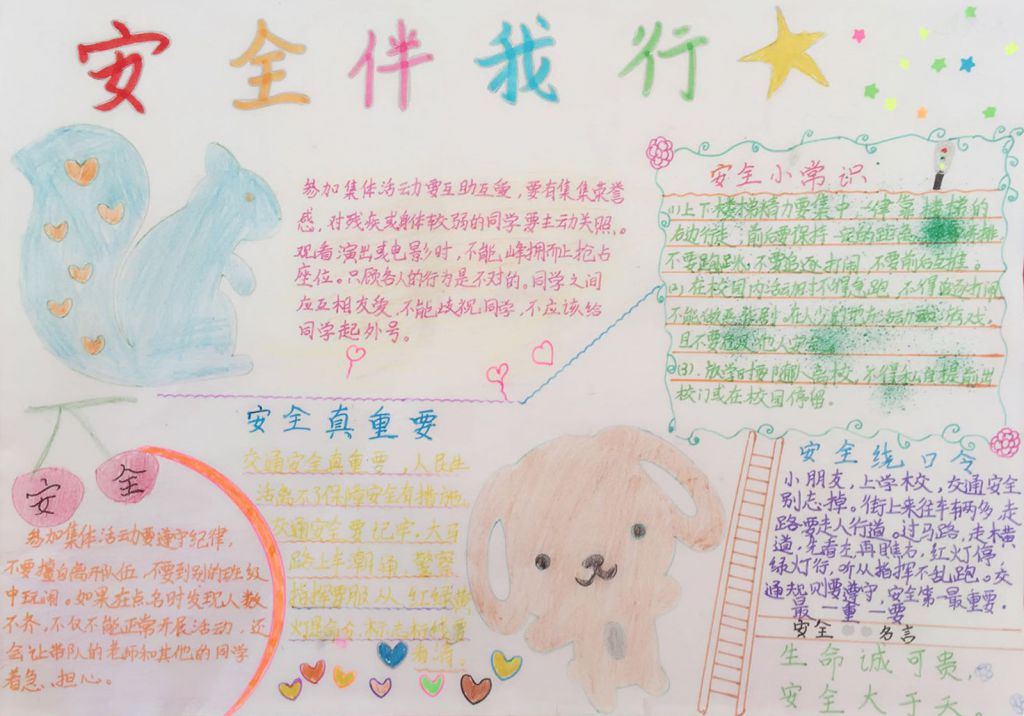 安全伴我行
参加集体活动要互助互爱,要有集集荣誉
感,对残疾或身体较弱的同学要主动关照。
观看演出或电影时,不能,蜂拥而止抢占
座位。只顾各人的行为是不对的。同学之间
应互相友爱,不能歧视同学,不应该给
同学起外号。
安全小常识
(1)上下楼梯精力要集中,一律靠楼梯的
右边行走,前后要保持一定的距离
不要追逐打闹,不要前后互推。
(2)、在校园内活动时不得急跑,不得追逐打闹
不能做恶作剧,在人少的地方活动或游戏。
(3)、放学时要排队离校,不得私自提前出
校门或在校园停留。
安全真重要
交通安全真重要,人民生
活离不了保障安全有措施,
交通安全要记牢,大马
路上车潮涌,警察
指挥要服从,红绿黄
安
全
参加集体活动要遵守纪律,
不要擅自离开队伍,不要到别的班级
中玩闹。如果在点名时发现人数
不齐,不仅不能正常开展活动,还
会让带队的老师和其他的同学
着急、担心。
安全绕口令
小朋友,上学校,交通安全
别忘掉。街上来往车辆多,走
路要走人行道。过马路,走横
道,先看左,再瞧右,红灯停,
绿灯行,听从指挥不乱跑。交
通规则要遵守,安全第一最重要。
最一重一要
安全
名言
生命诚可贵,
安全大于天。